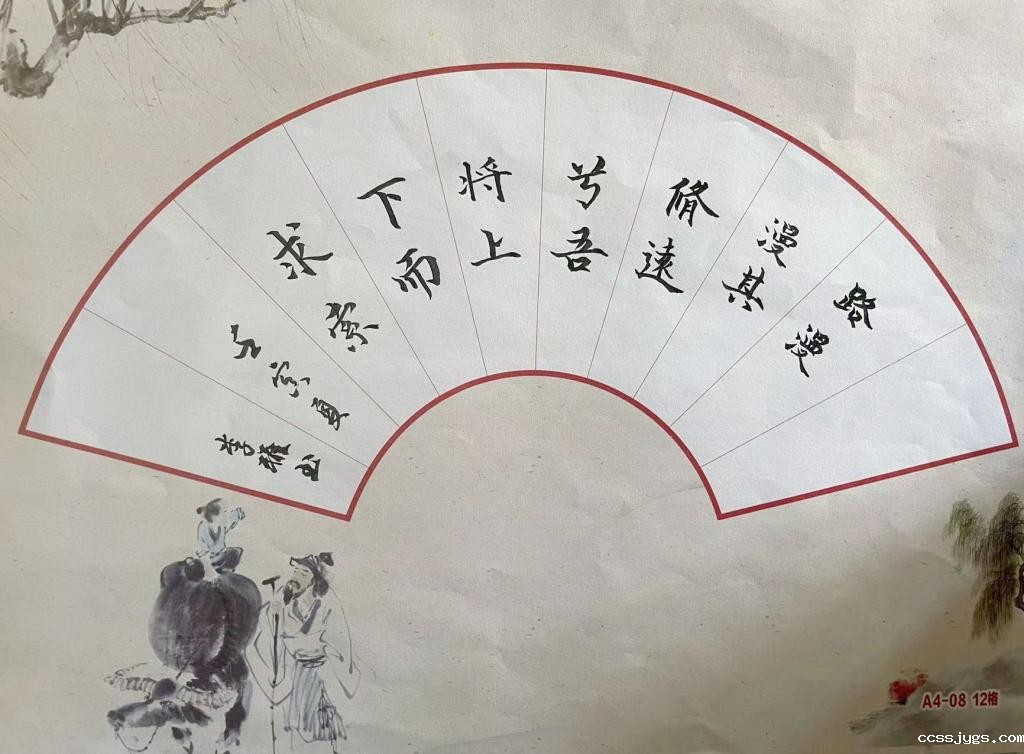 路漫
漫其
脩遠
兮吾
将上
下而
求索
壬寅夏
李雅书
A4-08 12格
ccssjygs.com